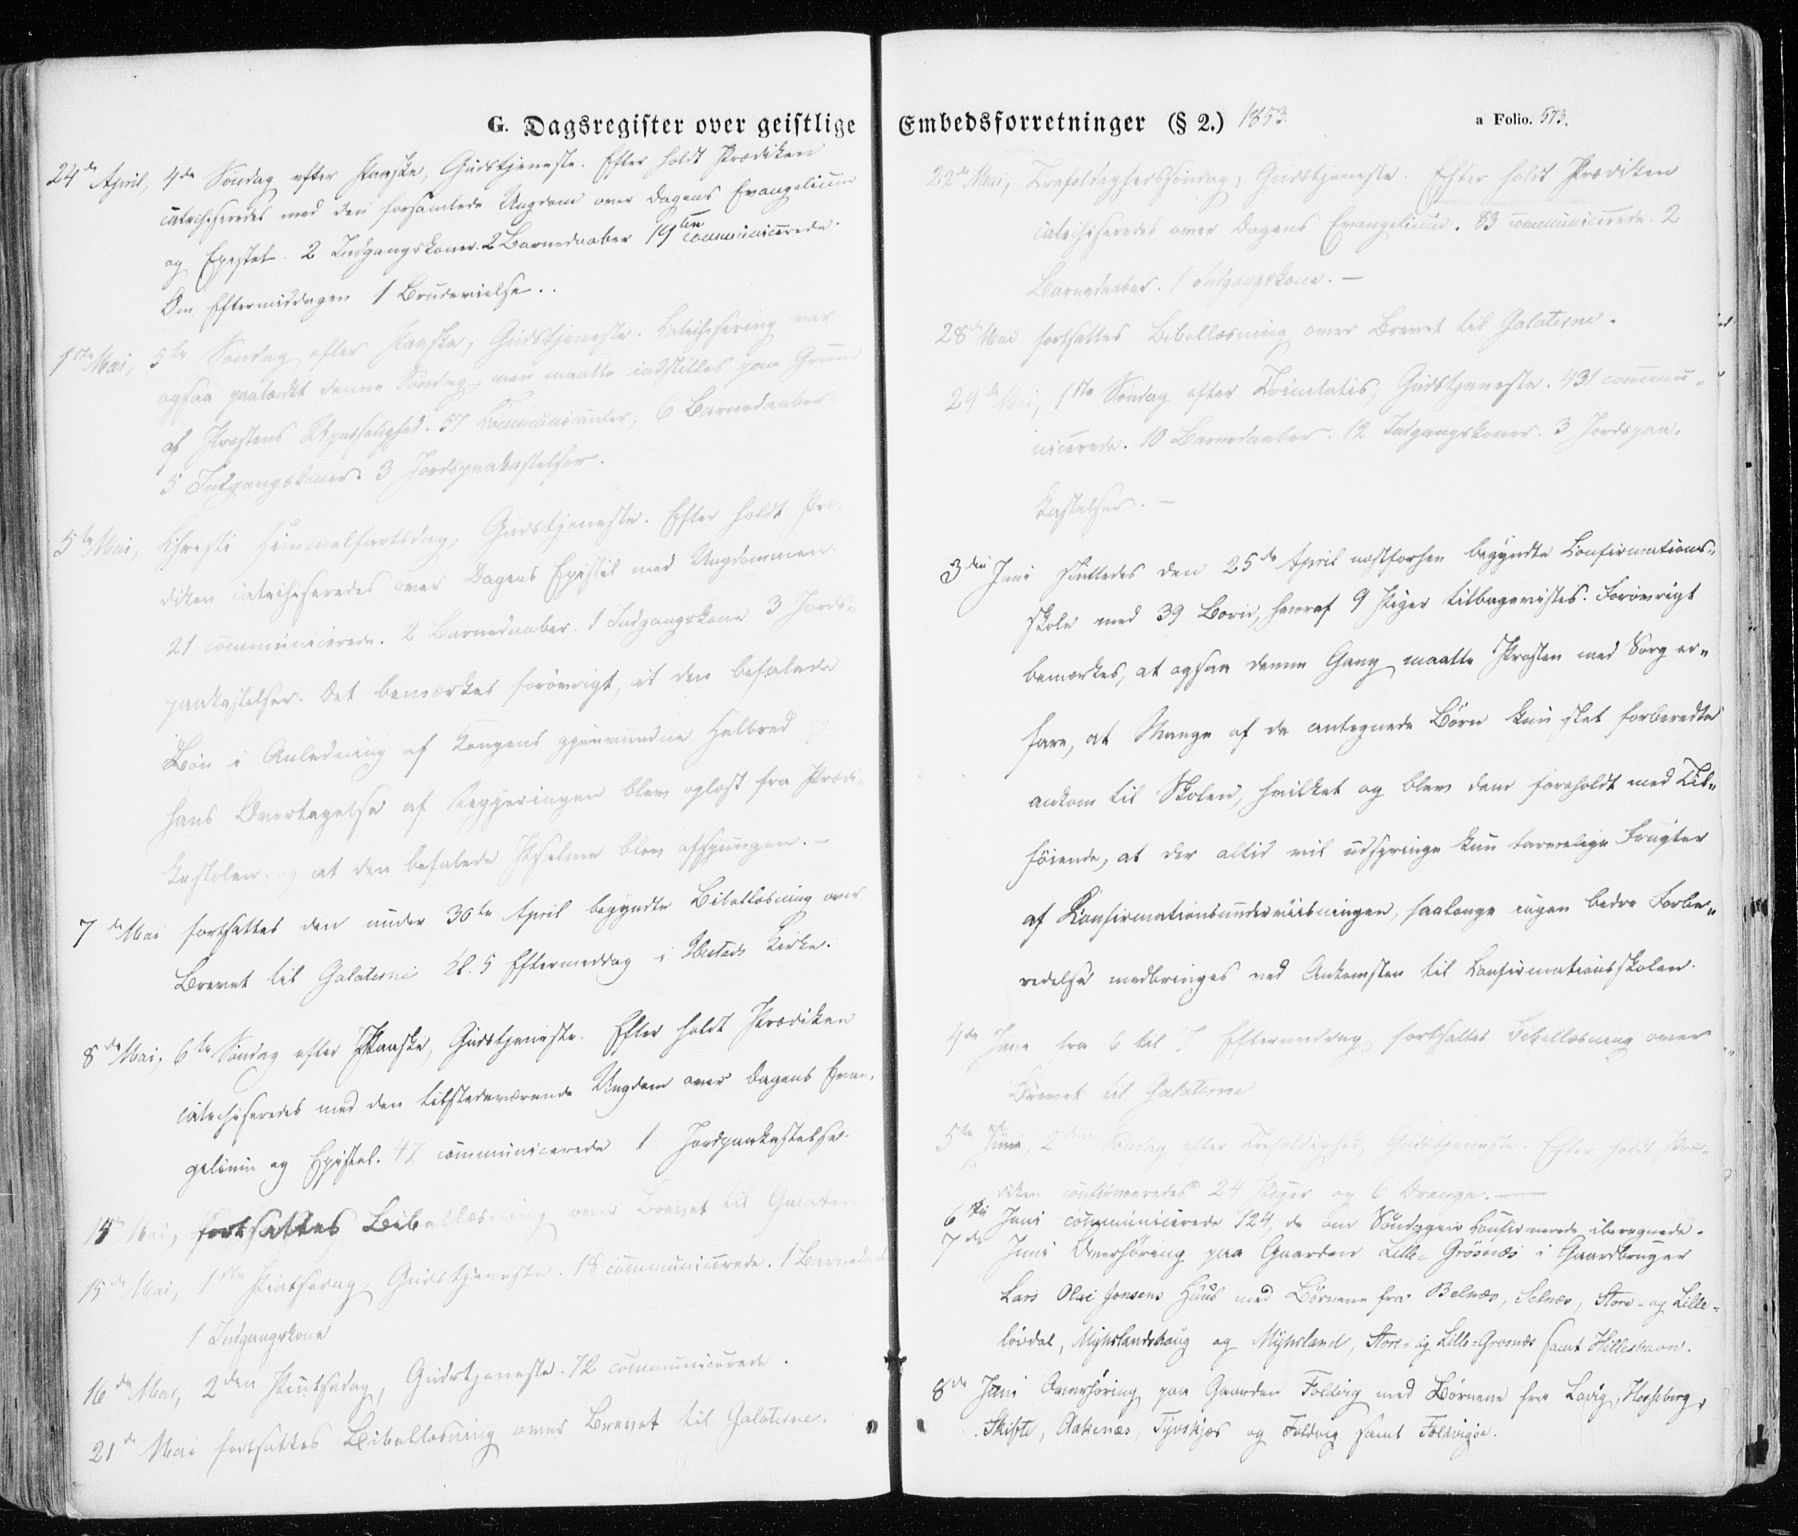 G. Dagsregister over geistlige Embedsforretninger (§ 2.) 1853. a Folio. 573.
24de April, 4de Søndag efter Paaske, Gudstjeneste. Efter holdt Prædiken
catechiseredes med den forsamlede Ungdom over Dagens Evangelium
og Epistel. 2 Indgangskoner. 2 Barnedaaber 19ten communicerede.
Om Eftermiddagen 1 Brudevielse..
1ste Mai, 5te Søndag efter Paaske, Gudstjeneste. Catechisering var
ogsaa paatænkt denne Søndag, men maatte indstilles paa Grund
af Præstens Upasselighed. 57 Communicanter, 6 Barnedaaber.
5 Indgangskoner 3 Jordspaakastelser.
5te Mai, Christi Himmelfartsdag, Gudstjeneste. Efter holdt Præ-
diken catechiseredes over Dagens Epistel med Ungdommen.
21 communicerede. 2 Barnedaaber. 1 Indgangskone 3 Jords-
paakastelser. Det bemærkes forøvrigt, at den befalede
Bøn i Anledning af Kongens gjenvundne Helbred og
hans Overtagelse af Regjeringen blev oplæst fra Prædi-
kestolen, og at den befalede Psalme blev afsungen. —
7de Mai fortsattes den under 30te April begyndte Bibellæsning over
Brevet til Galaterne Kl. 5 Eftermiddag i Ibestads Kirke.
8de Mai, 6te Søndag efter Paaske, Gudstjeneste. Efter holdt Prædiken
catechiseredes med den tilstedeværende Ungdom over Dagens Evan-
gelium og Epistel. 47 communicerede 1 Jordpaakastelse.
14de Mai, fortsattes Bibellæsning over Brevet til Galaterne
15de Mai, 1ste Pintsedag, Gudstjeneste. 18 communicerede. 1 Barnedaab
1 Indgangskone
16de Mai, 2den Pintsedag, Gudstjeneste. 72 communicerede.
21de Mai fortsattes Bibellæsning over Brevet til Galaterne.
22de Mai, Trefoldighedssøndag, Gudstjeneste. Efter holdt Prædiken
catechiseredes over Dagens Evangelium. 83 communicerede. 2
Barnedaaber. 1 Indgangskone. —
28de Mai fortsattes Bibellæsning over Brevet til Galaterne.
29de Mai, 1ste Søndag efter Trinitatis, Gudstjeneste. 431 commu-
nicerede. 10 Barnedaaber. 12 Indgangskoner. 3 Jordspaa-
kastelser. —
3die Juni sluttedes den 25de April næstforhen begyndte Confirmations-
skole med 39 Børn, hvoraf 9 Piger tilbageviistes. Forøvrigt
bemærkes, at ogsaa denne Gang maatte Præsten med Sorg er-
fare, at Mange af de antegnede Børn kun slet forberedte
ankom til Skolen, hvilket og blev dem foreholdt med Til-
føiende, at der altid vil udspringe kun tarvelige Frugter
af Konfirmationsunderviisningen, saalænge ingen bedre Forbe-
redelse medbringes ved Ankomsten til Confirmationsskolen.
4de Juni fra 6 til 7 Eftermiddag fortsattes Bibellæsning over
Brevet til Galaterne
5te Juni, 2den Søndag efter Trefoldighed, Gudstjeneste. Efter holdt Præ-
diken confirmeredes 24 Piger og 6 Drenge. —
6te Juni communicerede 124, de om Søndagen Confirmerede iberegnede.
7de Juni Overhøring paa Gaarden Lille-Grøvnæs i Gaardbruger
Lars Olai Jonsens Huus med Børnene fra Belnæs, Selnæs, Store- og Lille-
løvdal, Myhrlandshaug og Myhrland, Store- og Lille-Grovnæs samt Hilleshavn.
8de Juni Overhøring paa Gaarden Foldvig med Børnene fra Lavig, Hesseberg,
Skifte, Aakenæs, Tyvskjæs og Foldvig samt Foldvigøe.